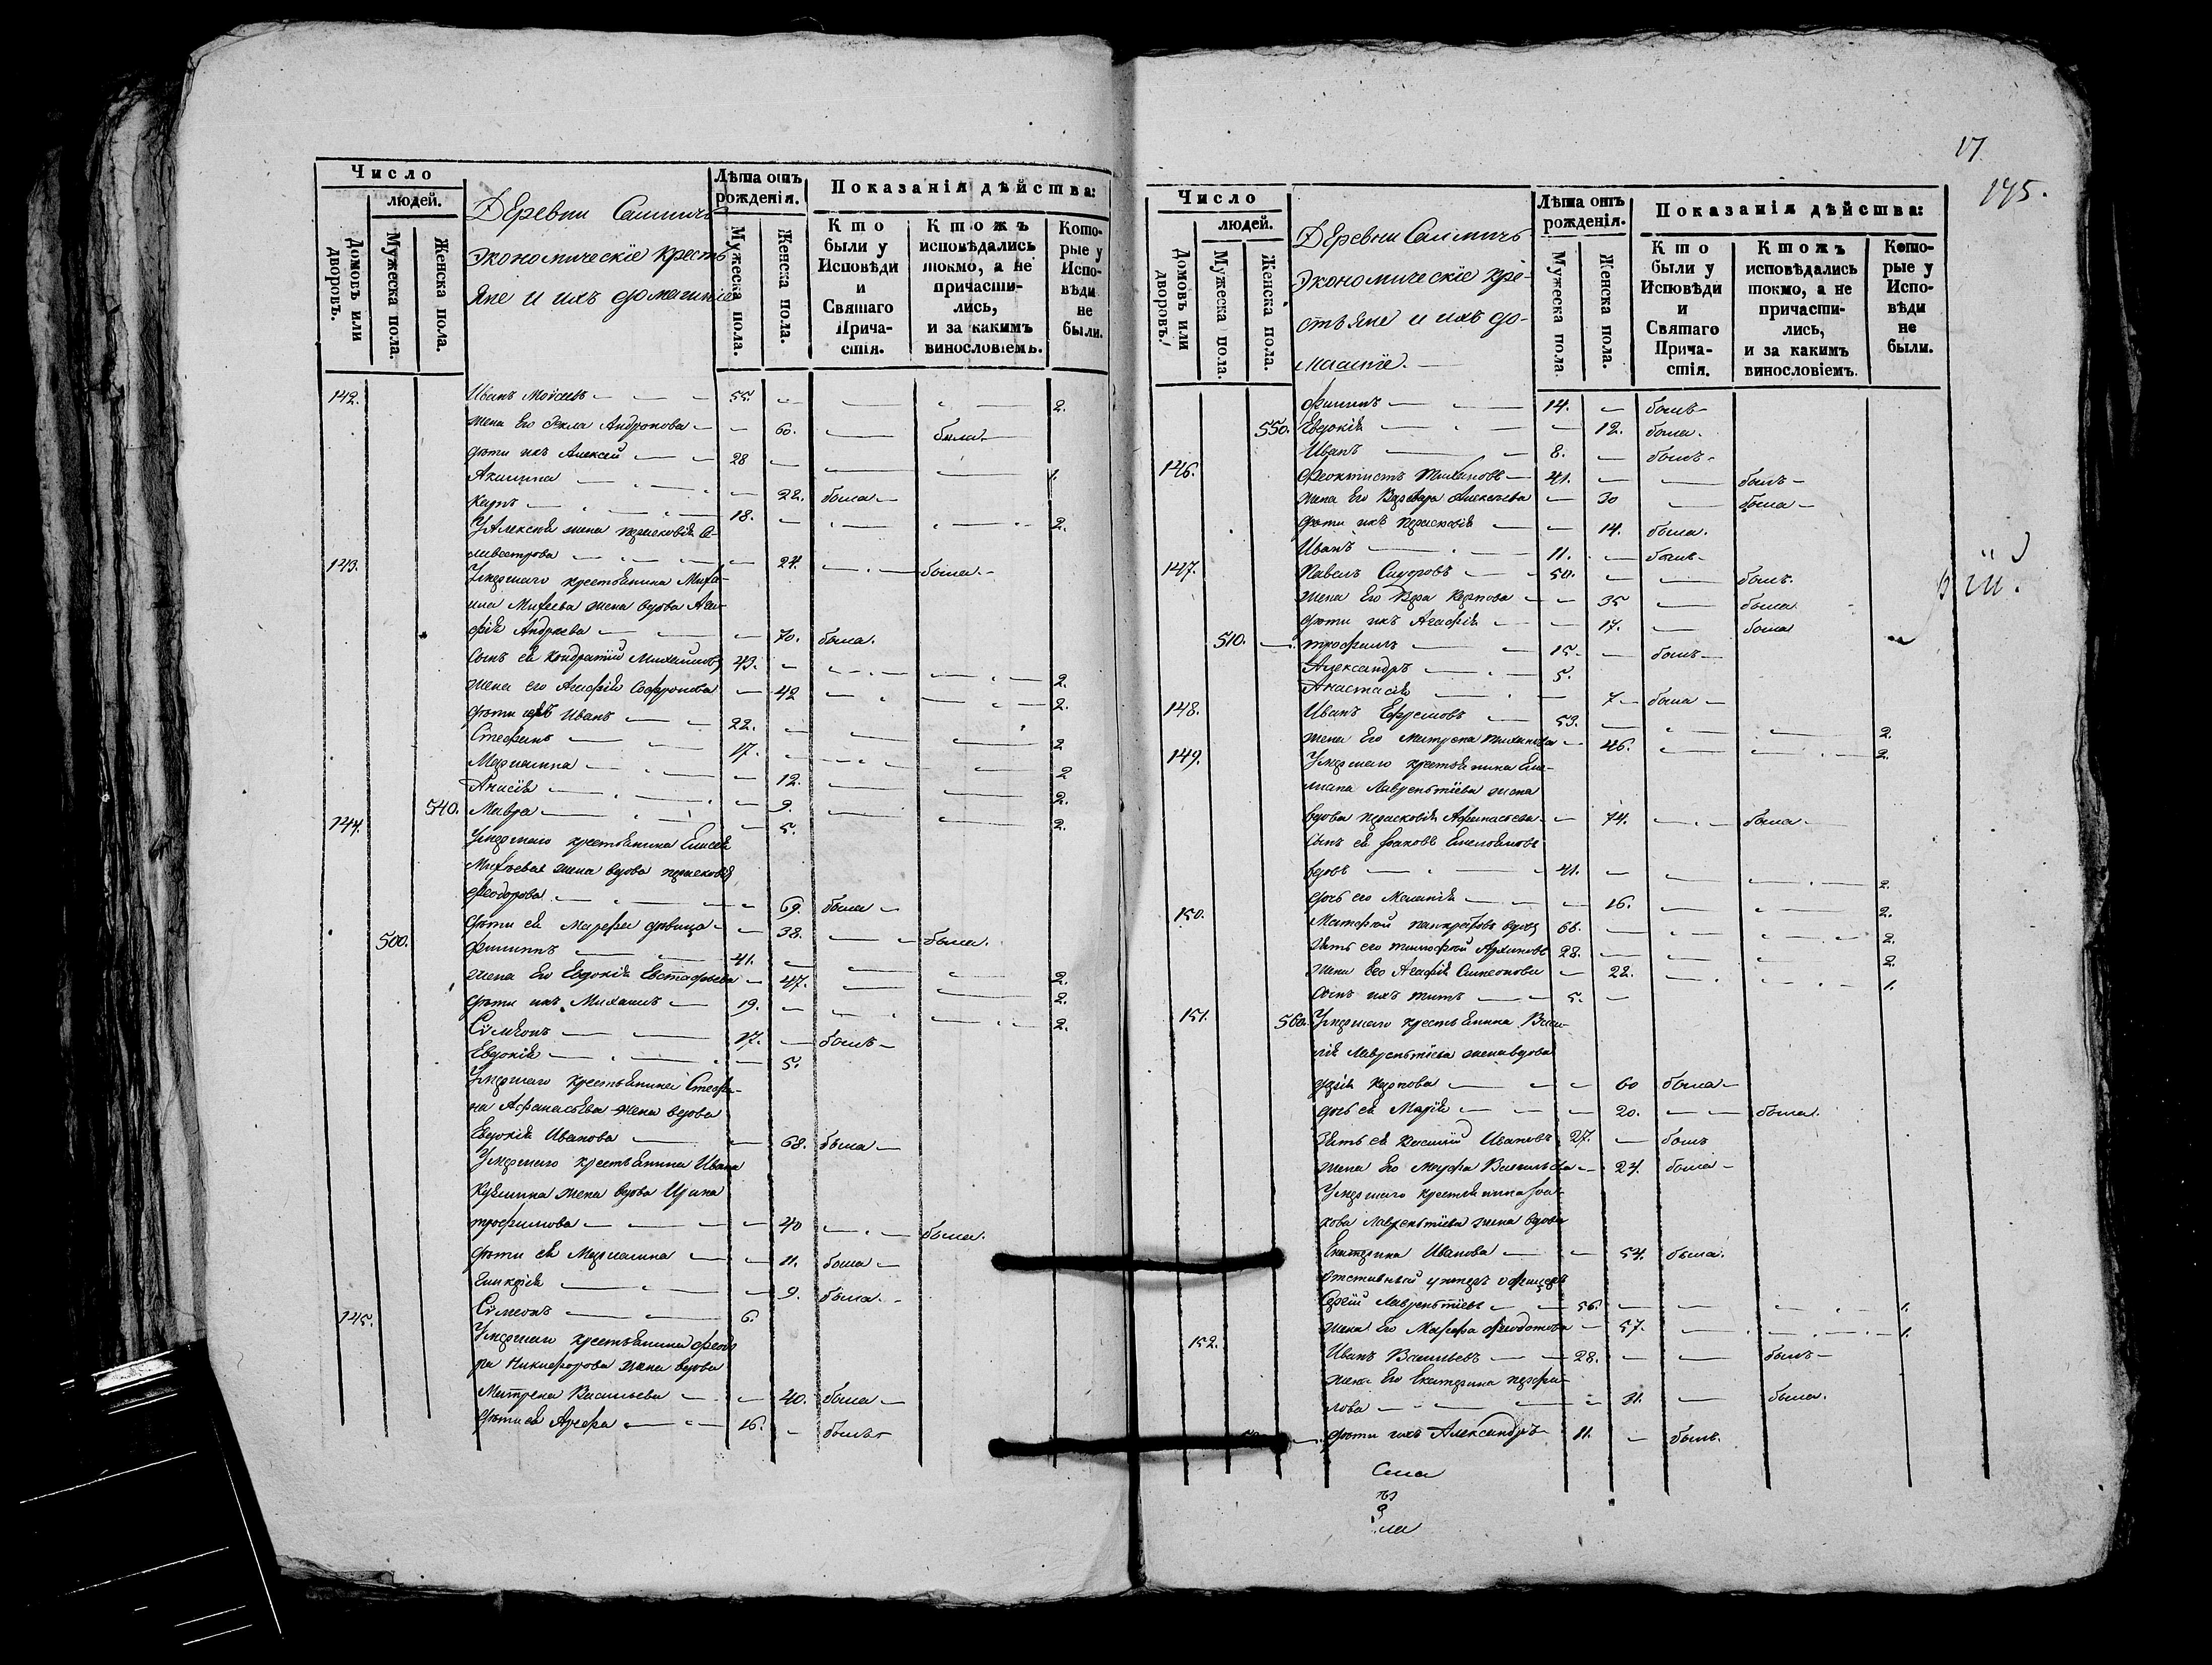 Число
людей.
Домовъ или дворовъ.
Мужеска пола.
Женска пола.
Деревни
Экономическіе кресть
яне и ихъ домашніе
Лѣта отъ рожденія.
Мужеска пола.
Женска пола.
Показанія дѣйства:
Кто были у Исповѣди и Святаго Причастія.
Ктожъ исповѣдались токмо, а не причастились, и за какимъ винословіемъ.
Которые у Исповѣди не были.
142. Иванъ Моѵсеевъ — 55. — 2.
жена Его Фекла Андронова — 60. — была
дѣти ихъ Алексей — 28 — 1.
Акилина — 22. была —
Карпъ — 18. — 2.
У Алексѣя жена Парасковія Се-
ливестрова — 24. — была —
143. Умершаго крестьянина Миха-
ила Михеева жена вдова Ага-
фія Андреева — 70. была.
Сынъ ея Кондратій Михайловъ 43. — 2.
жена его Агафія Софронова — 42 — 2.
дѣти ихъ Иванъ — 22. — 2
Стефанъ — 17. — 2
Маріамна — 12. — 2.
Анасія — 9. — 2.
540. Мавра — 5.
144. Умершаго крестьянина Елисея
Михѣева жена вдова Парасковія
Феодорова — 69. была —
дѣти ея Марѳа дѣвица — 38. — была.
500. Филиппъ — 41. — 2.
жена Его Евдокія Евстафьева — 47. — 2.
дѣти ихъ Михаилъ — 19. — 2.
Сѵмеонъ — 17. — былъ —
Евдокія — 5.
Умершаго крестьянина Стефа-
на Афанасьева жена вдова
Евдокія Иванова — 68. была —
Умершаго крестьянина Ивана
Кузмина жена вдова Ирина
Трофимова — 40 — была.
дѣти ея Маріамна — 11. была —
Гликерія — 9. была. —
Сѵмеонъ — 6.
145. Умершаго крестьянина Феодо
ра Никифорова жена вдова
Матрена Васильева — 40. была —
дѣти ея Арефа — 16. — былъ
17.
175.
Число
людей.
Домовъ или дворовъ.
Мужеска пола.
Женска пола.
Деревни
Экономическіе кре-
стьяне и ихъ до-
машніе. —
Лѣта отъ рожденія.
Мужеска пола.
Женска пола.
Показанія дѣйства:
Кто были у Исповѣди и Святаго Причастія.
Ктожъ исповѣдались токмо, а не причастились, и за какимъ винословіемъ.
Которые у Исповѣди не были.
Филипъ — 14. — былъ —
550. Евдокія — 12. была.
Иванъ — 8. — былъ —
146. Феоктистъ Тихановъ — 41. — былъ —
жена Его Варвара Алексѣева — 30 — была —
дѣти ихъ Парасковія — 14. была.
Иванъ — 11. — былъ —
147. Павелъ Сидоровъ — 50. — былъ.
жена Его Вера Карпова — 35 — была
дѣти ихъ Агафія — 17. — была
510. Трофимъ — 15. — былъ —
Александръ — 5.
Анастасія — 7 — была —
148. Иванъ Ефремовъ — 53. — 2.
жена Его Матрена Тиханова — 46. — 2.
149. Умершаго крестьянина Еме-
лиана Лаврентіева жена
вдова Парасковія Афанасьева — 74. — была —
Сынъ ея Іаковъ Емельяновъ
вдовъ — 41. — 2.
дочь его Меланія — 16. — 2.
150. Матфей Панкратовъ вдовъ 66. — 2.
Зять его Тимофей Архиповъ 28. — 2.
жена Его Агафія Симеонова — 22. — 1.
Сынъ ихъ Титъ — 5. —
151. 560. Умершаго крестьянина Васи-
лія Лаврентіева жена вдова
Карпова — 60 была —
дочь ея Марія — 20. — была.
Зять ея Ивановъ 27. — былъ
жена Его Марфа Васильева — 24. была —
Умершаго крестьянина Іа-
кова Лаврентіева жена вдова
Екатерина Иванова — 54. была.
Отставный унтеръ офицеръ
Сергій Лаврентіевъ — 56. — 1.
жена Его Марфа Феодотова — 57. — 1.
152. Иванъ Васильевъ — 28. — былъ —
жена Его Екатерина Парфи-
лова — 31. — была.
дѣти ихъ Александръ 11. — былъ.